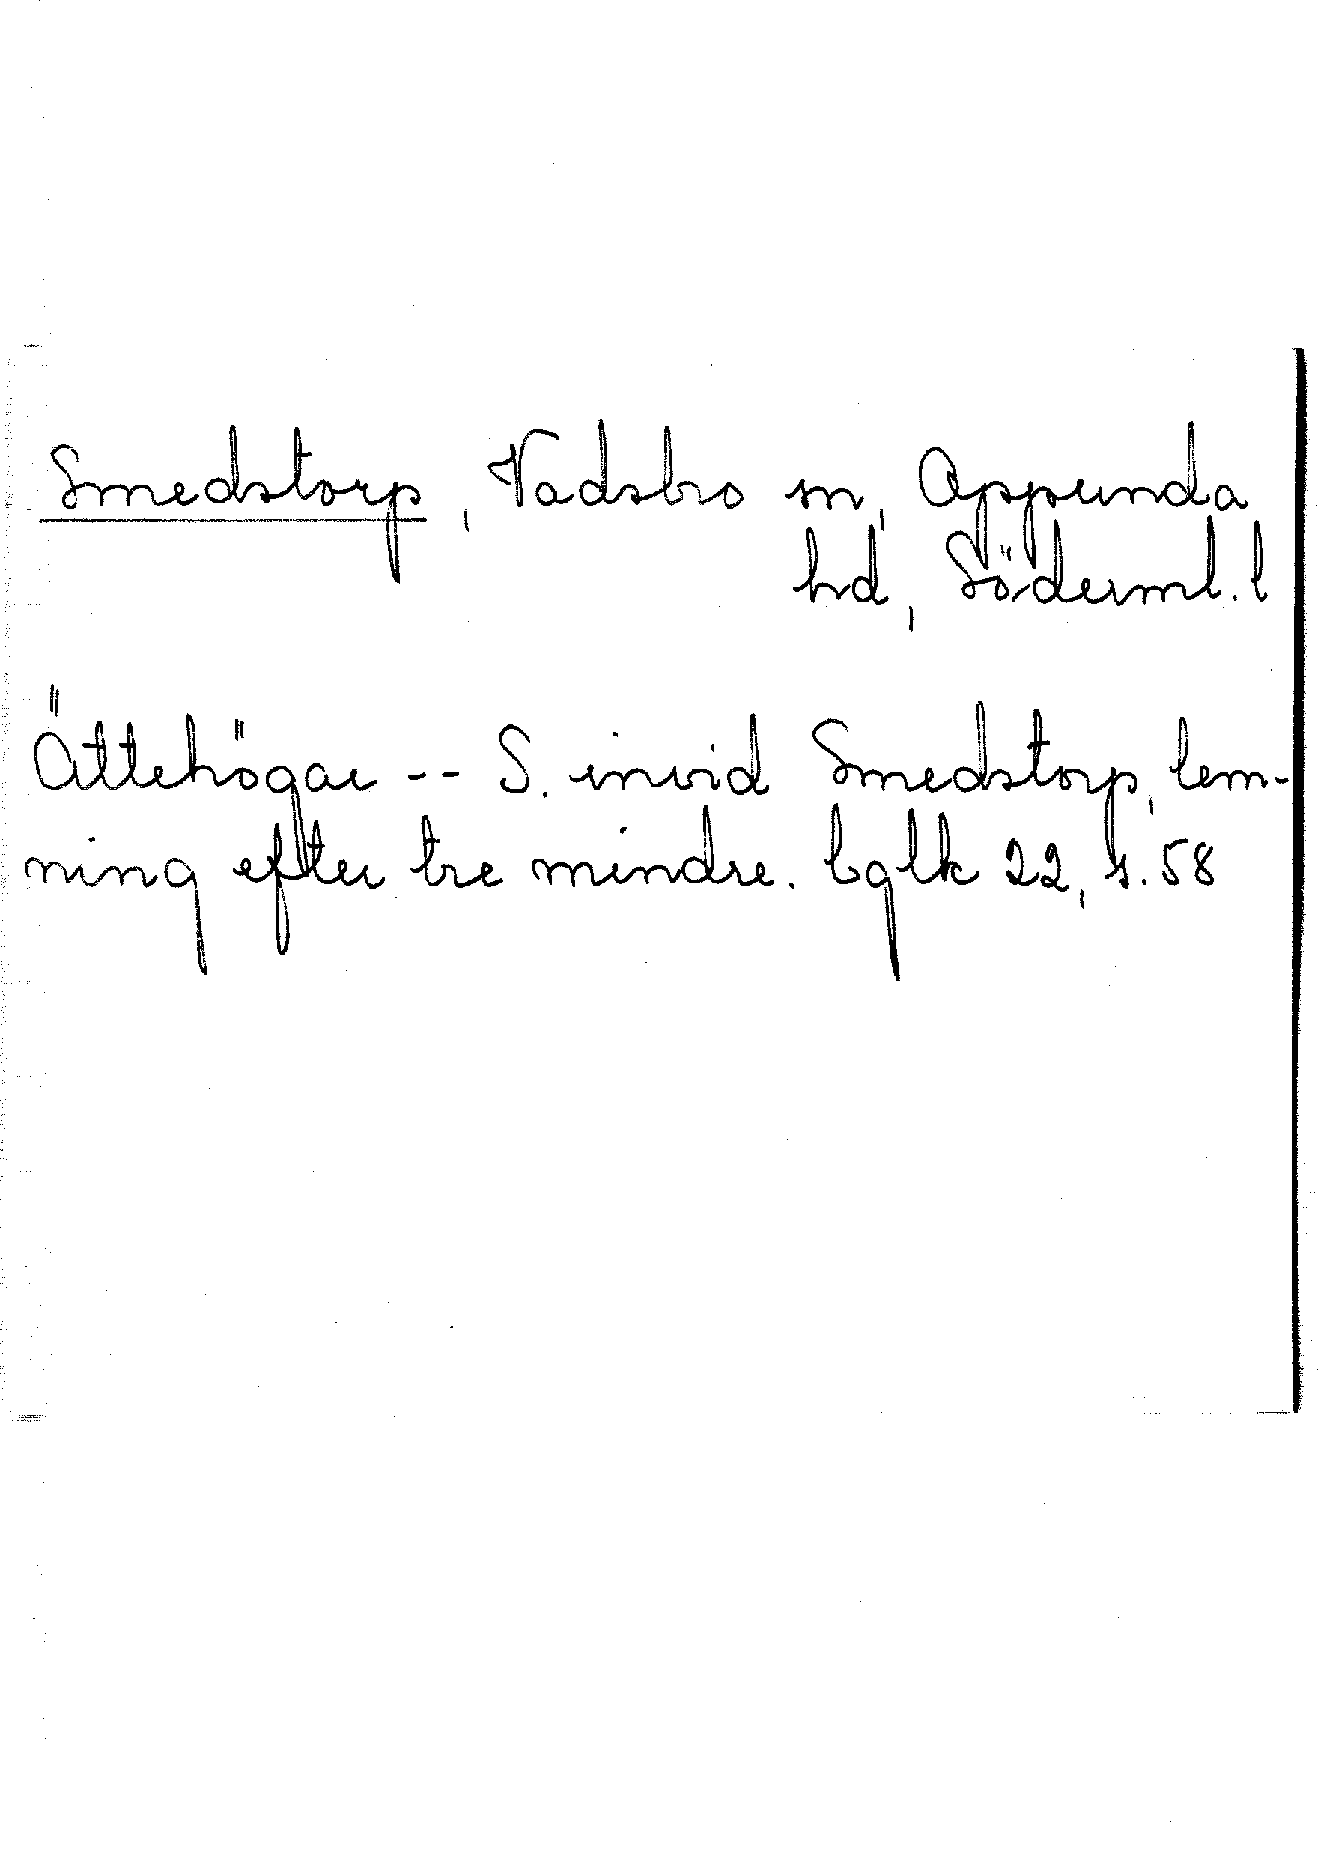 Smedstorp, Vadsbro sn, Oppunda
hd, Söderml. l
Ättehögar -- S. invid Smedstorp, lem-
ning efter tre mindre. bglk 22, s. 58